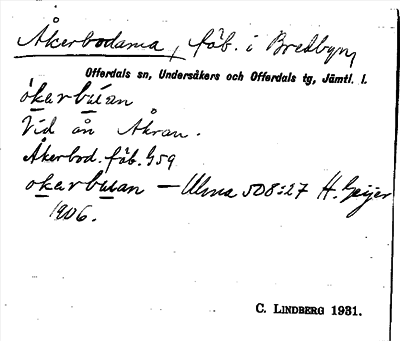 Åkerbodarna, fäb. i Bredbyn,
Offerdals sn, Undersåkers och Offerdals tg, Jämtl. l.
ókarbúan
Vid ån Åkran.
Åkerbod. fäb. G59
okarbuan — Ulma 508:27 H. Geijer
1906.
C. LINDBERG 1931.